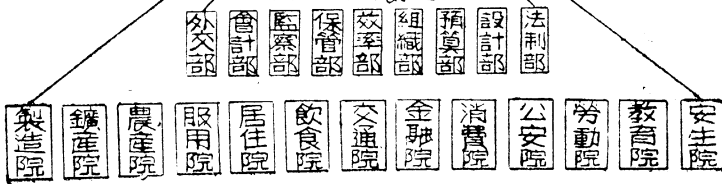 外交部 會計部 監察部 保管部 效率部 組織部 預算部 設計部 法制部
製造院 鑛產院 農產院 服用院 居住院 飲食院 交通院 金融院 消費院 公安院 勞動院 教育院 安生院